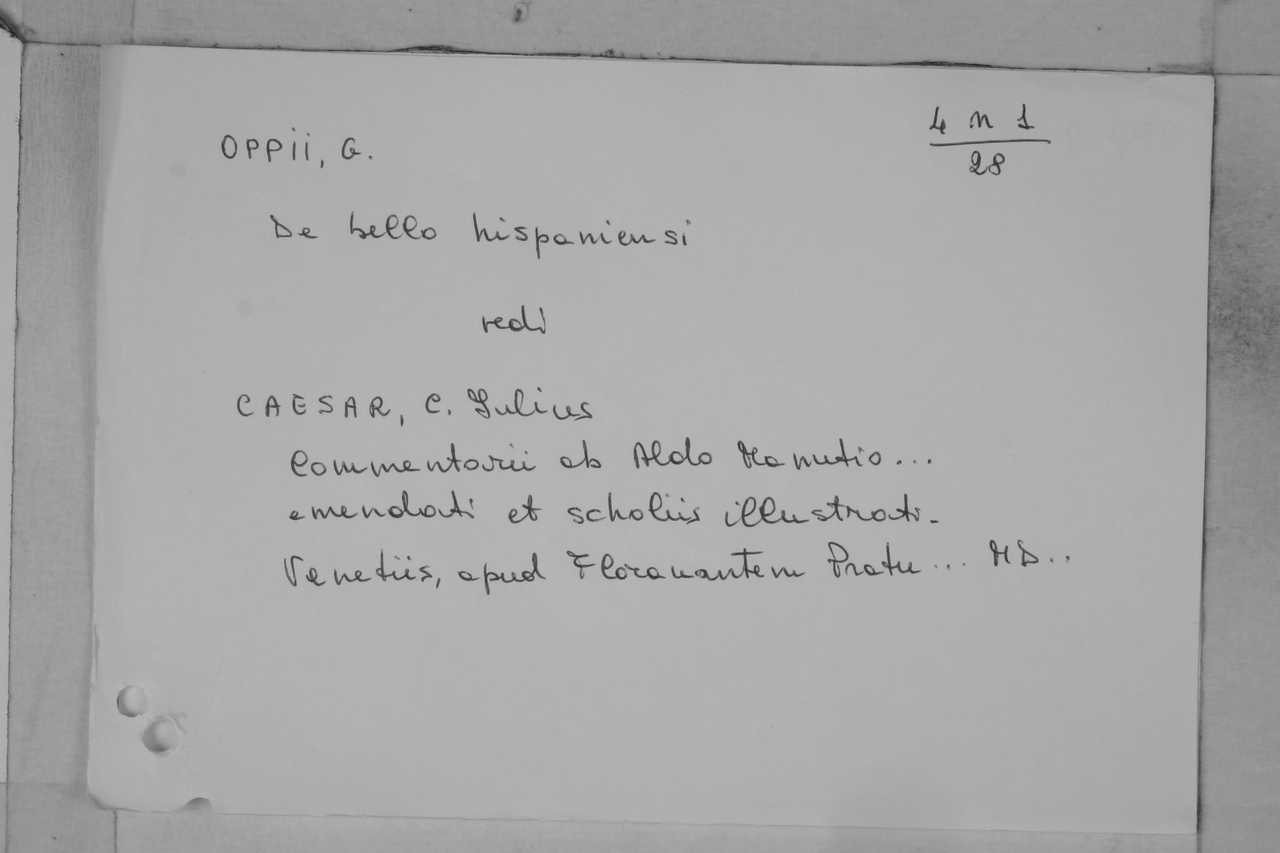 OPPii, G.
4 n 1
28
De bello hispaniensi
vedi
CAESAR, C. Iulius
Commentarii ab Aldo Manutio...
emendati et scholiis illustrati.
Venetiis, apud Florauantem Pratu... MD..